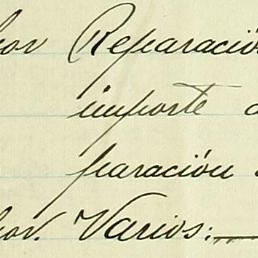 por Reparación
importe d
paración
por. Varios: